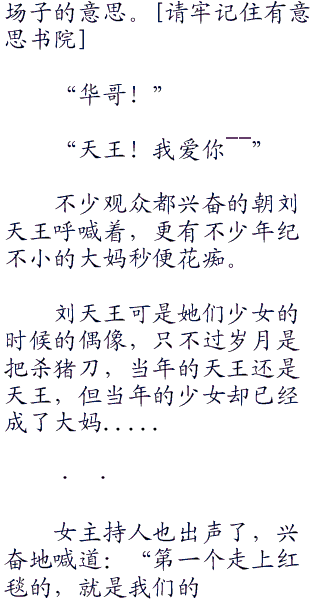 场子的意思。[请牢记住有意
思书院]
“华哥！”
“天王！我爱你――”
不少观众都兴奋的朝刘
天王呼喊着，更有不少年纪
不小的大妈秒便花痴。
刘天王可是她们少女的
时候的偶像，只不过岁月是
把杀猪刀，当年的天王还是
天王，但当年的少女却已经
成了大妈.....
. .
女主持人也出声了，兴
奋地喊道：“第一个走上红
毯的，就是我们的